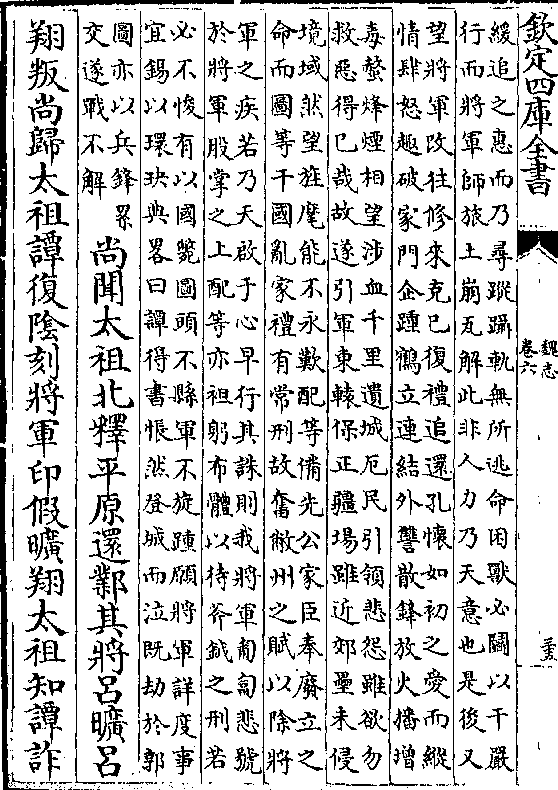 欽定四庫全書
魏志
卷六
緩追之惠而乃尋蹤躡軌無所逃命困獸必鬭以干嚴
行而將軍師旅土崩瓦解此非人力乃天意也是後又
望將軍改往修來克己復禮追還孔懷如初之愛而縱
情肆怒趣破家門企踵鶴立連結外讐散鋒放火播增
毒螫烽煙相望涉血千里遺城厄民引領悲怨雖欲勿
救惡得已哉故遂引軍東轅保正疆場雖近郊壘未侵
境域然望旌麾能不永歎配等備先公家臣奉廢立之
命而圖等干國亂家禮有常刑故奮敝州之賦以除將
軍之疾若乃天啟于心早行其誅則我將軍匍匐悲號
於將軍股掌之上配等亦袒躬布體以待斧鉞之刑若
必不悛有以國斃圖頭不縣軍不旋踵願將軍詳度事
宜錫以環玦典畧曰譚得書悵然登城而泣既劫於郭
圖亦以兵鋒累
交遂戰不解
尚聞太祖北釋平原還鄴其將呂曠呂
翔叛尚歸太祖譚復陰刻將軍印假曠翔太祖知譚詐